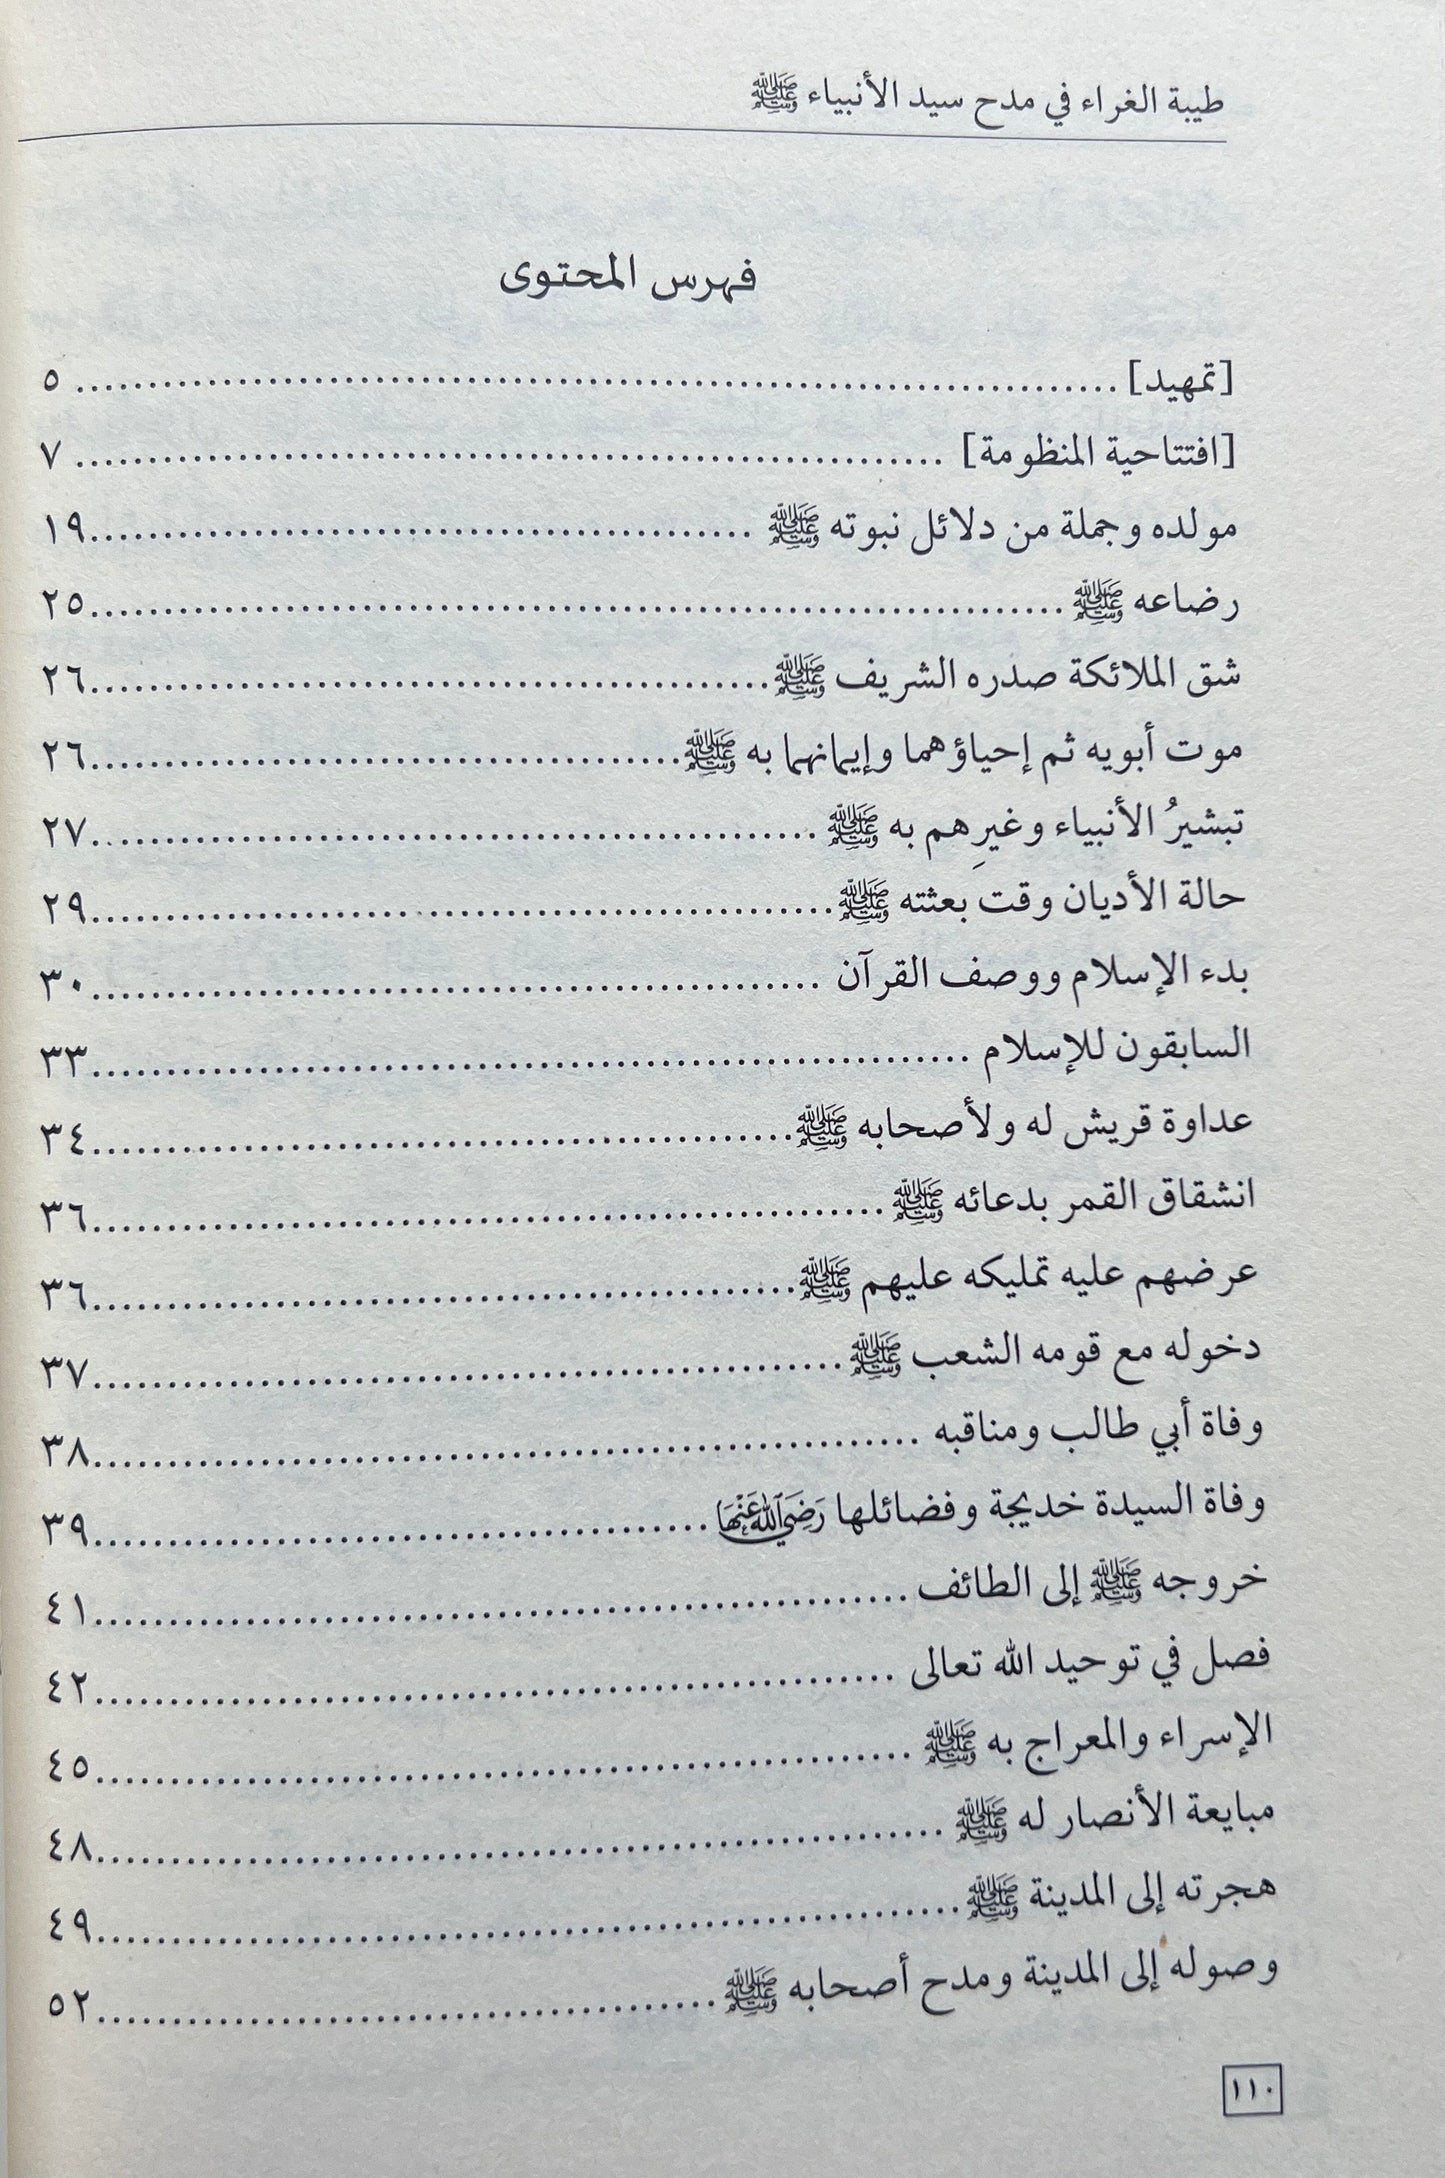 طيبة الغراء في مدح سيد الأنبياء ﷺ
فهرس المحتوى
[تمهيد] ........ ٥
[افتتاحية المنظومة] ........ ٧
مولده وجملة من دلائل نبوته ﷺ ........ ١٩
رضاعه ﷺ ........ ٢٥
شق الملائكة صدره الشريف ﷺ ........ ٢٦
موت أبويه ثم إحياؤهما وإيمانهما به ﷺ ........ ٢٦
تبشيرُ الأنبياء وغيرِهم به ﷺ ........ ٢٧
حالة الأديان وقت بعثته ﷺ ........ ٢٩
بدء الإسلام ووصف القرآن ........ ٣٠
السابقون للإسلام ........ ٣٣
عداوة قريش له ولأصحابه ﷺ ........ ٣٤
انشقاق القمر بدعائه ﷺ ........ ٣٦
عرضهم عليه تمليكه عليهم ﷺ ........ ٣٦
دخوله مع قومه الشعب ﷺ ........ ٣٧
وفاة أبي طالب ومناقبه ........ ٣٨
وفاة السيدة خديجة وفضائلها رَضِيَ اللهُ عَنْهَا ........ ٣٩
خروجه ﷺ إلى الطائف ........ ٤١
فصل في توحيد الله تعالى ........ ٤٢
الإسراء والمعراج به ﷺ ........ ٤٥
مبايعة الأنصار له ﷺ ........ ٤٨
هجرته إلى المدينة ﷺ ........ ٤٩
وصوله إلى المدينة ومدح أصحابه ﷺ ........ ٥٢
١١٠